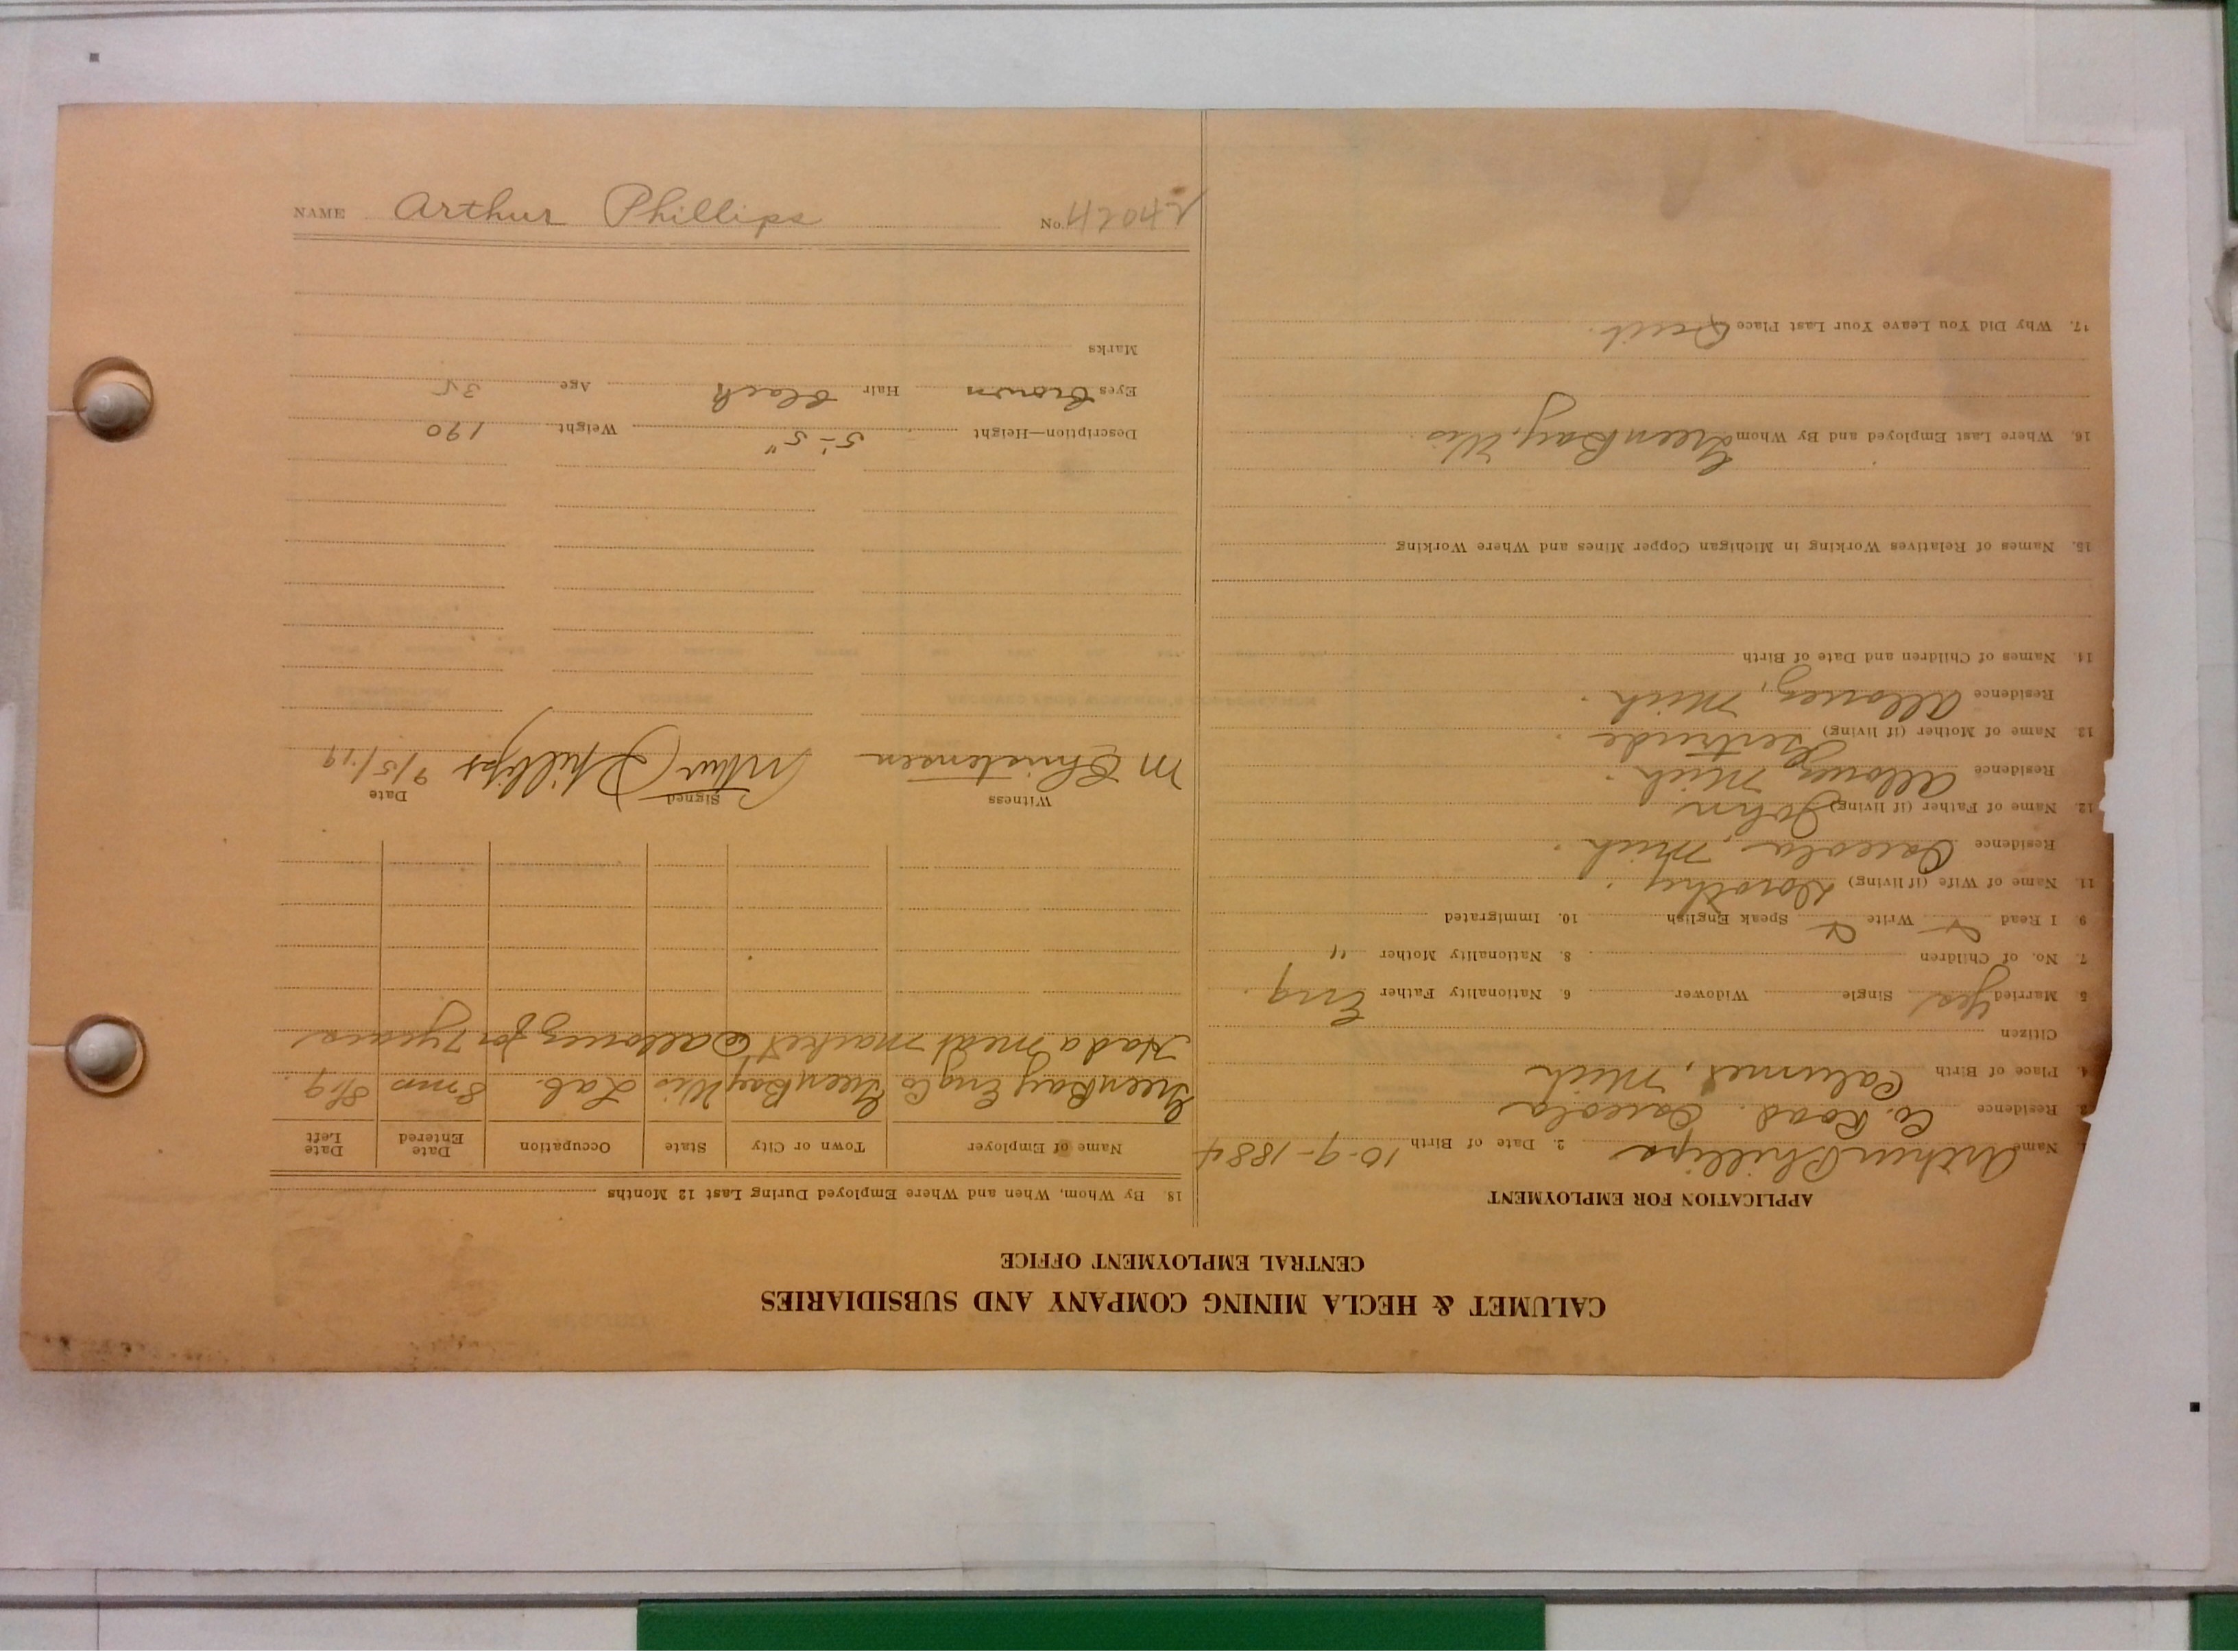 CALUMET & HECLA MINING COMPANY AND SUBSIDIARIES
CENTRAL EMPLOYMENT OFFICE
APPLICATION FOR EMPLOYMENT
Name Arthur Phillips 2. Date of Birth 10-9-1884
3. Residence Co. Road. Osceola
4. Place of Birth Calumet, Mich
Citizen
5 Married Yes Single Widower 6. Nationality Father Eng.
7. No. of Children 8. Nationality Mother "
9 I Read Write Speak English 10. Immigrated
11. Name of Wife (if living) Dorothy.
Residence Osceola, Mich.
12. Name of Father (if living) John
Residence Allouez, Mich.
13. Name of Mother (if living) Gertrude.
Residence Allouez, Mich.
14. Names of Children and Date of Birth
15. Names of Relatives Working in Michigan Copper Mines and Where Working
16. Where Last Employed and By Whom Green Bay, Wis.
17. Why Did You Leave Your Last Place Quit.
18. By Whom, When and Where Employed During Last 12 Months
Name of Employer Town or City State Occupation Date Entered Date Left
Green Bay Eng Co Green Bay Wis Lab. 8 mos 8/19.
Had a meat market @ Allouez for 7 years
Witness Signed Date
M Christensen Arthur Phillips 9/5/19
Description—Height 5'-5" Weight 190
Eyes brown Hair black Age 35
Marks
NAME Arthur Phillips No. 42042